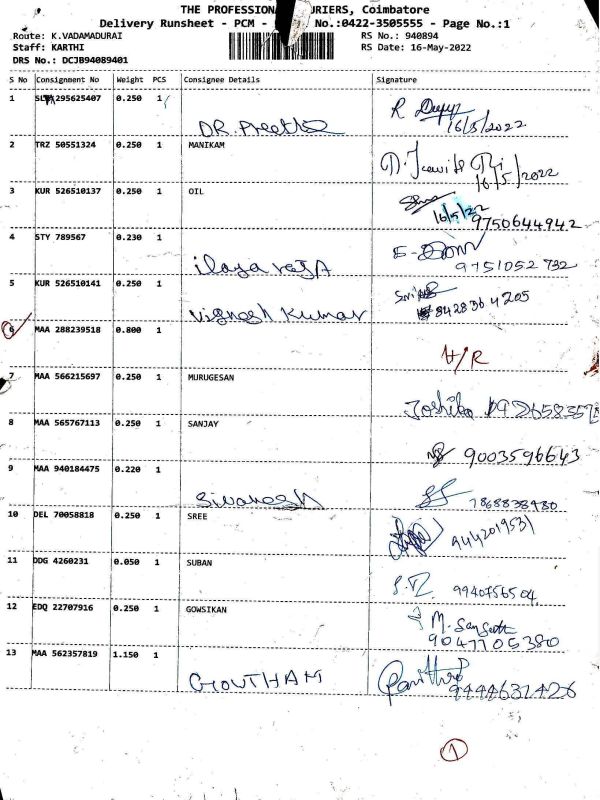 THE PROFESSIONAL COURIERS, Coimbatore
Delivery Runsheet - PCM - No.:0422-3505555 - Page No.:1
Route: K.VADAMADURAI RS No.: 940894
Staff: KARTHI RS Date: 16-May-2022
DRS No.: DCJB94089401
S No Consignment No Weight PCS Consignee Details Signature
1 295625407 0.250 1 DR. Preetha R 16/5/2022
2 TRZ 50551324 0.250 1 MANIKAM 16/5/2022
3 KUR 526510137 0.250 1 OIL 16/5/22 9750644942
4 STY 789567 0.230 1 ilaya raja 9751052732
5 KUR 526510141 0.250 1 Vignesh Kumar 8428364205
6 MAA 288239518 0.800 1 H/R
7 MAA 566215697 0.250 1 MURUGESAN Joshiba
8 MAA 565767113 0.250 1 SANJAY 9003596643
9 MAA 940184475 0.220 1 Sivanesh 7868838480
10 DEL 70058818 0.250 1 SREE 9442019531
11 DDG 4260231 0.050 1 SUBAN 9940756504
12 EDQ 22707916 0.250 1 GOWSIKAN M. 9047705380
13 MAA 562357819 1.150 1 GOUTHAM 9444631426
1